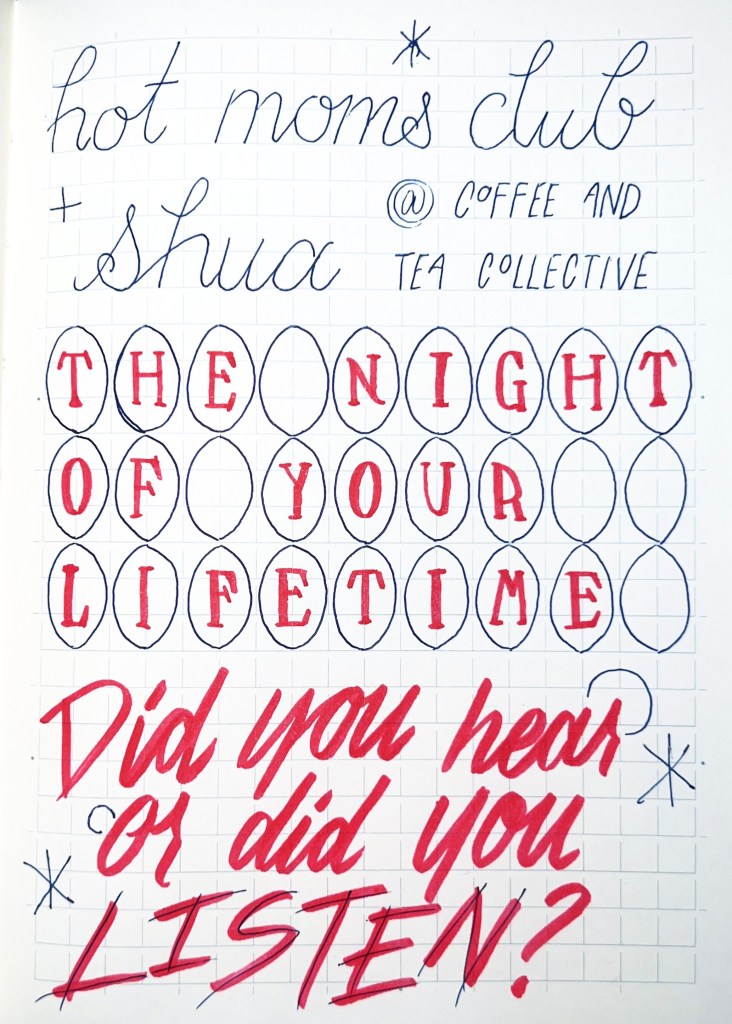 hot moms club
+ shua @ COFFEE AND
TEA COLLECTIVE
THE NIGHT
OF YOUR
LIFETIME
Did you hear
or did you
LISTEN?